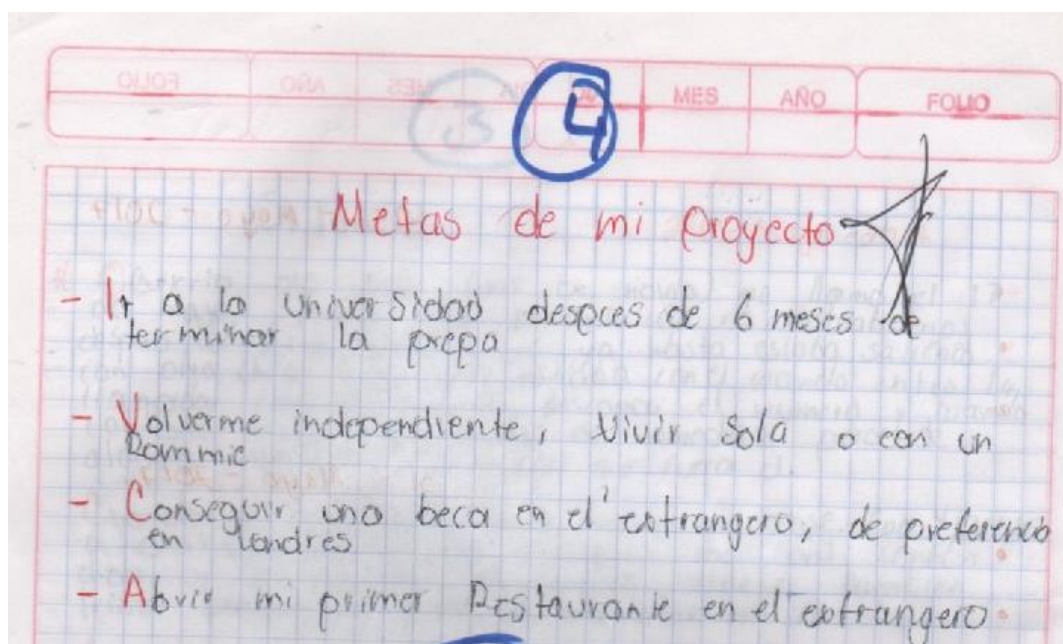 MES AÑO FOLIO
4
Metas de mi proyecto
- Ir a la universidad despues de 6 meses de
terminar la prepa
- Volverme independiente, Vivir Sola o con un
Rommie
- Conseguir una beca en el extrangero, de preferencia
en Londres
- Abrir mi primer Restaurante en el extrangero